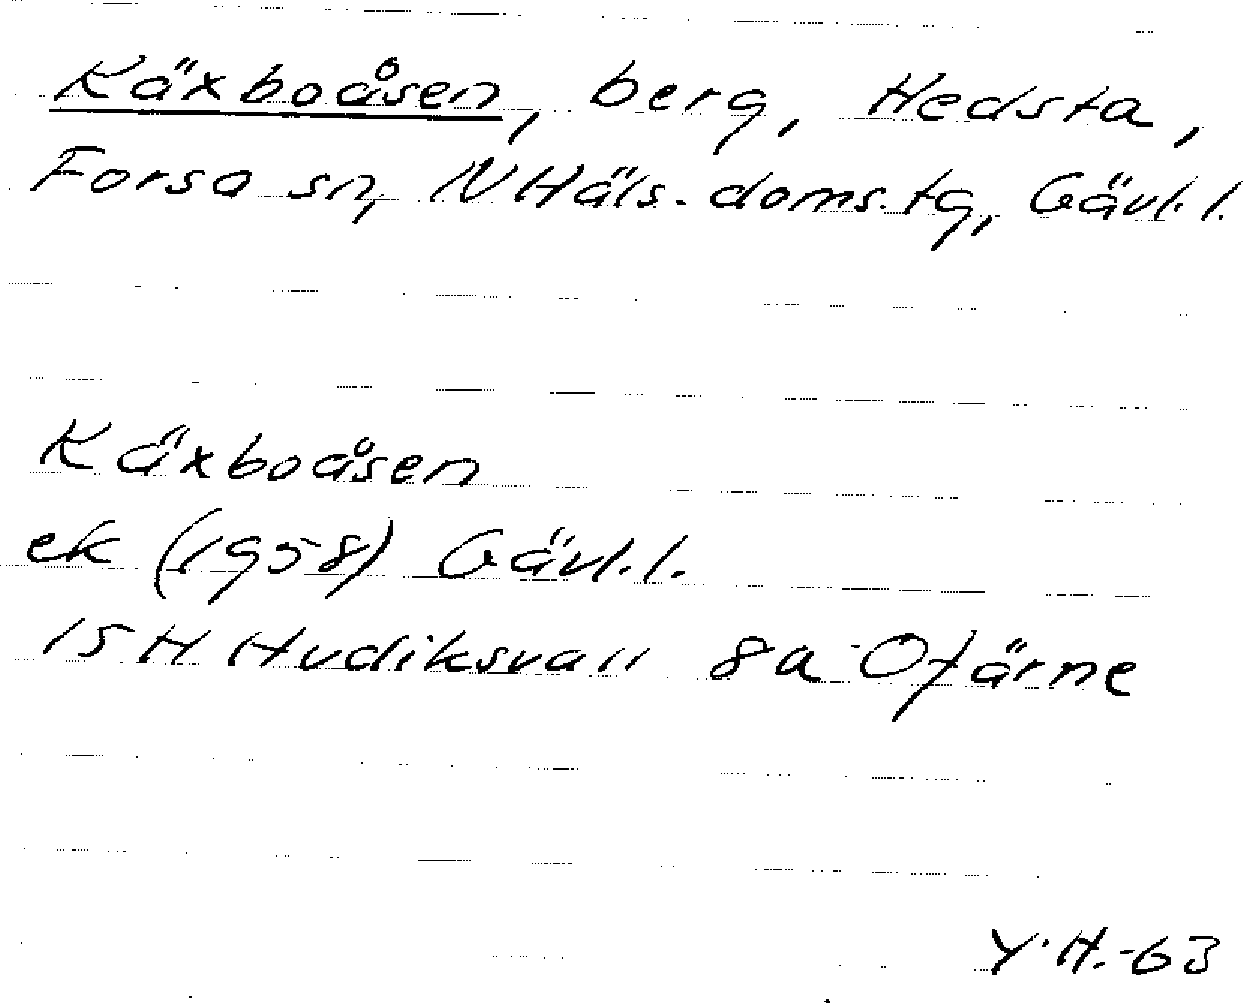 Käxboåsen, berg, Hedsta,
Forsa sn, N Häls. doms.tg, Gävl.l.
Käxboåsen
ek (1958) Gävl.l.
15H Hudiksvall 8a Ofärne
Y.H.-63